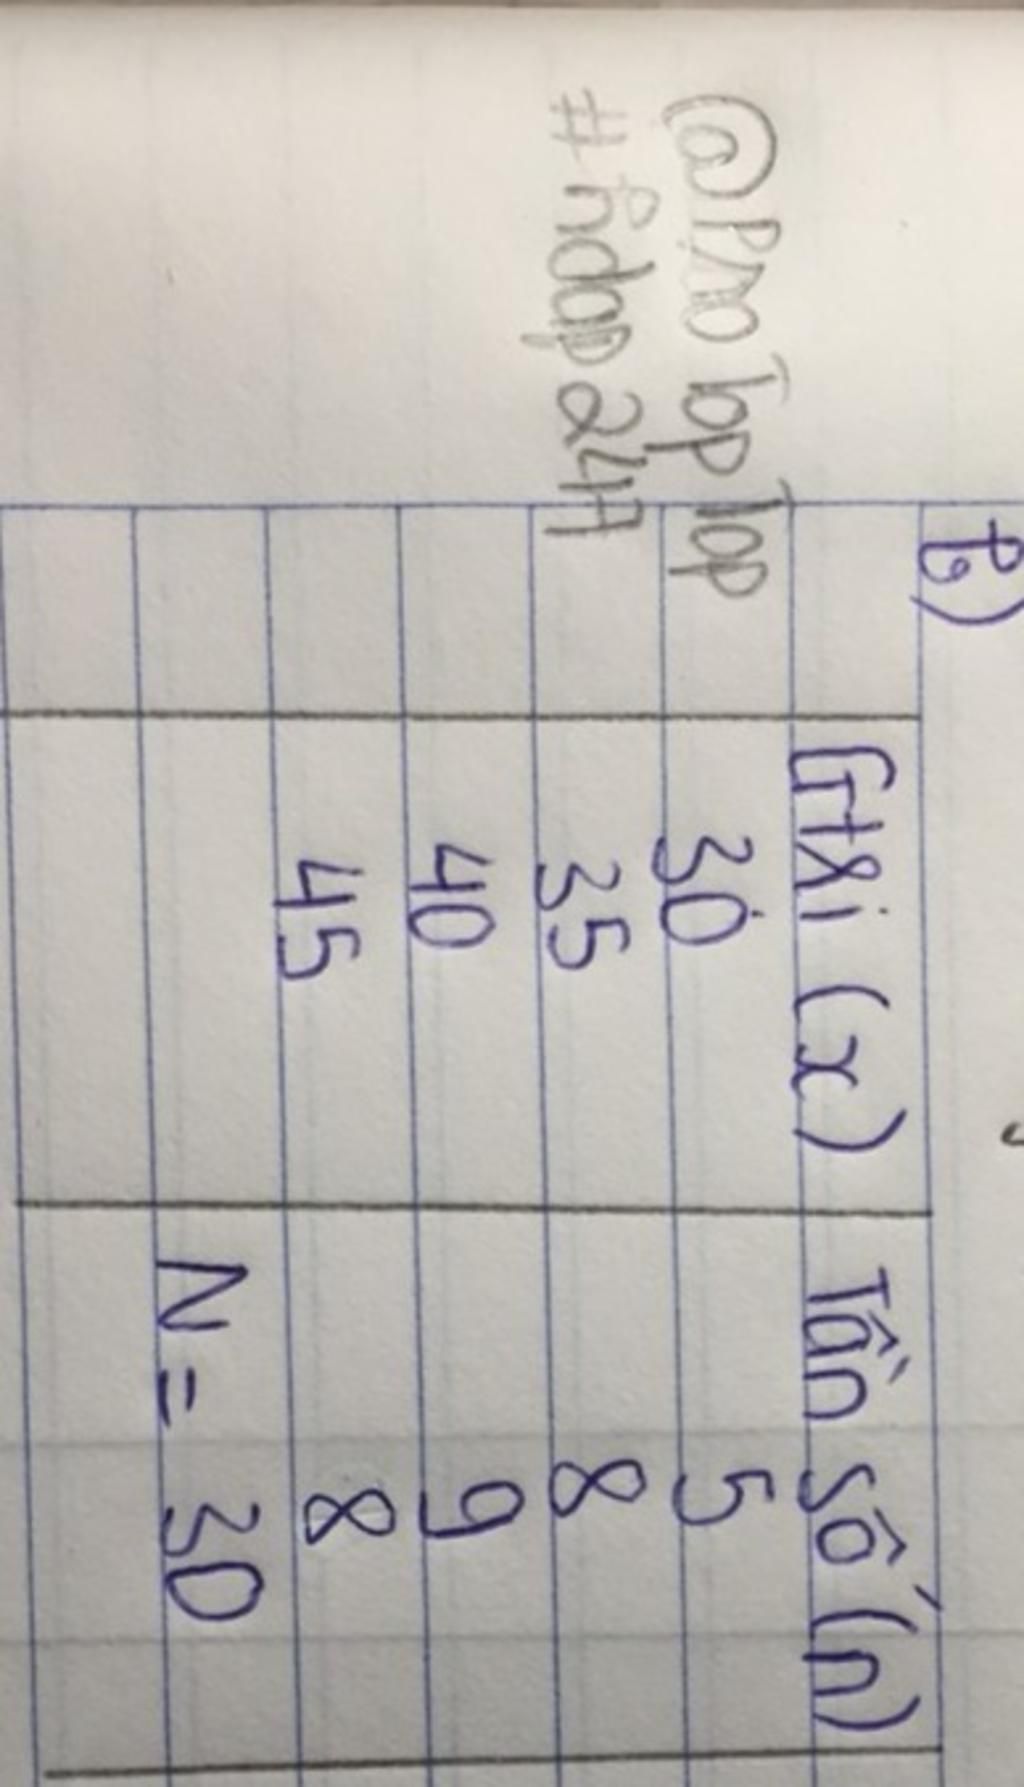 B)
Gtrị (x) Tần số (n)
30 5
35 8
40 9
45 8
N = 30
@Pro Top Top
#hdap247